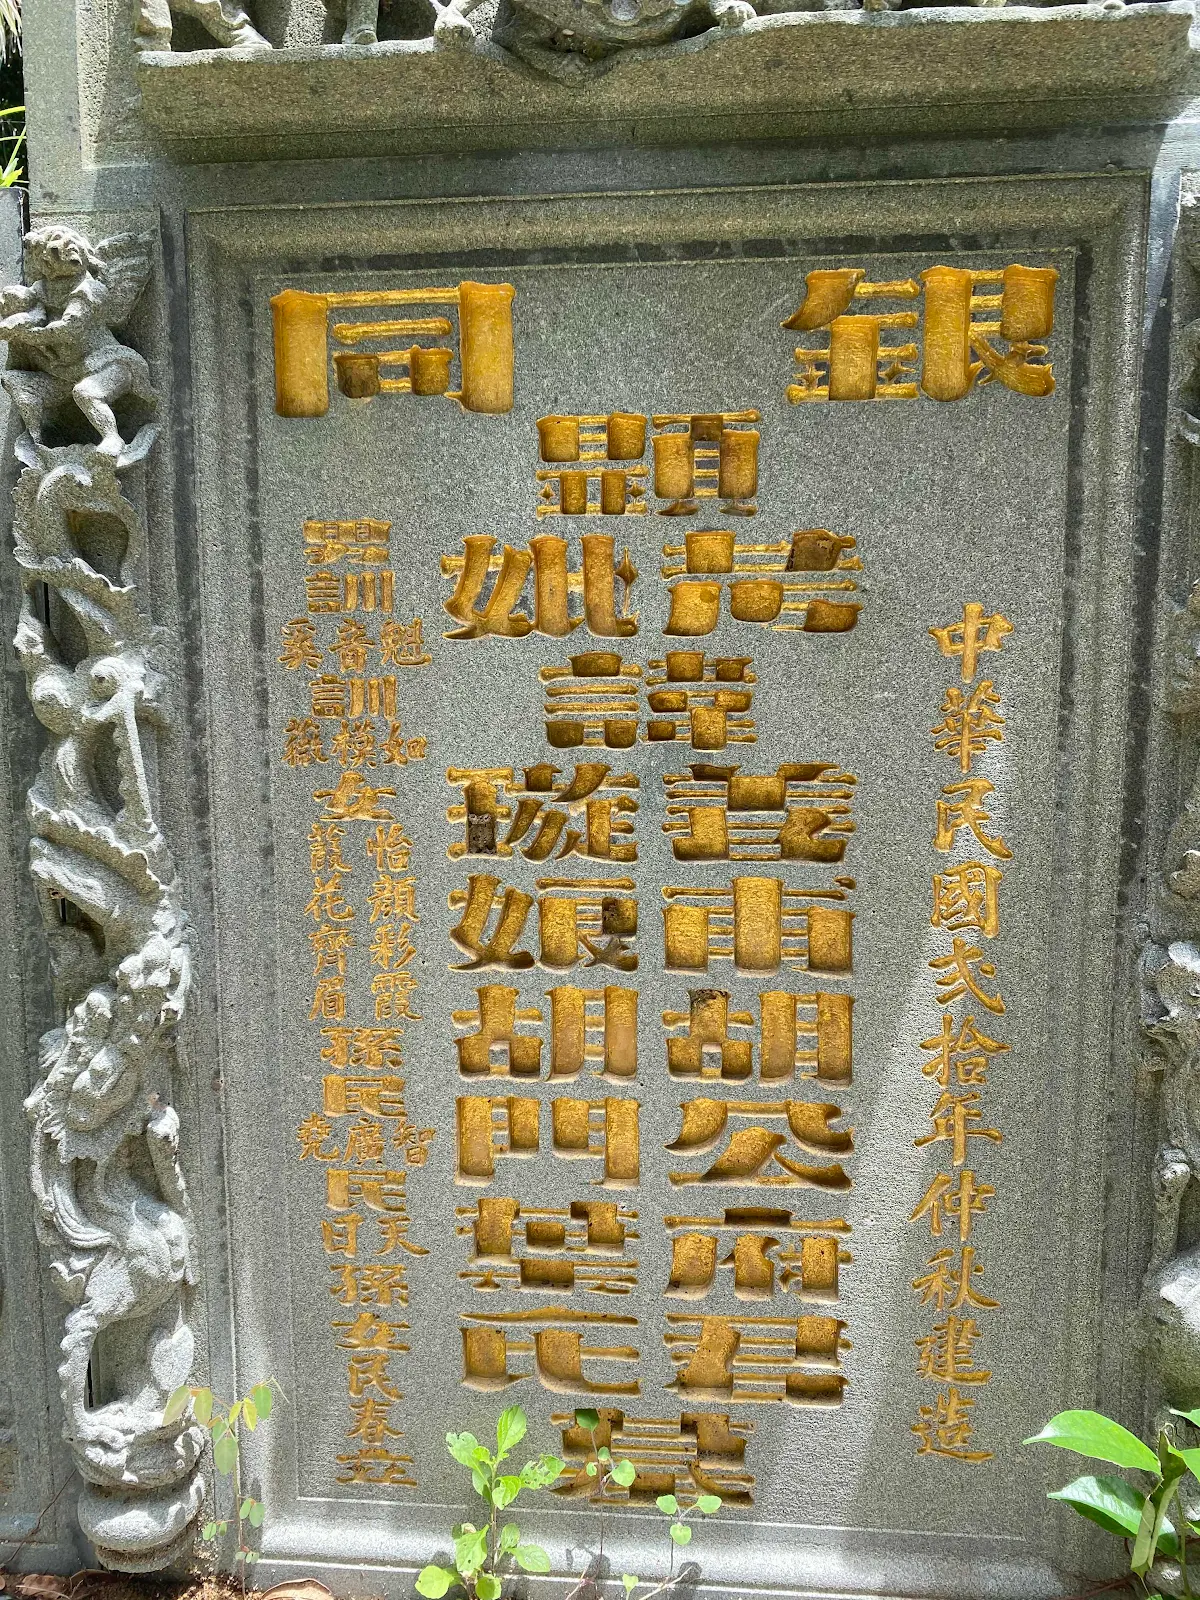 銀同
中華民國弍拾年仲秋建造
顯
考
妣
諱
善甫胡公府君
璇娘胡門葉氏
墓
男訓
魁音奚
訓
如模薇
女
怡顏彩霞
葭花齊眉
孫民
智廣堯
民
天日
孫女民春